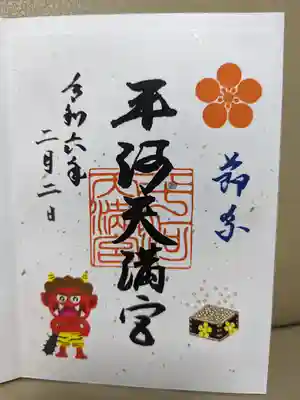 節分
平河天満宮
令和六年
二月二日